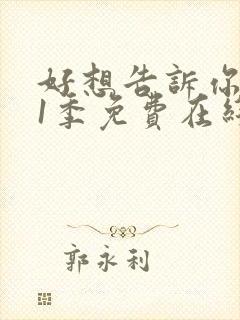 好想告訴你
1季免費在
郭永利